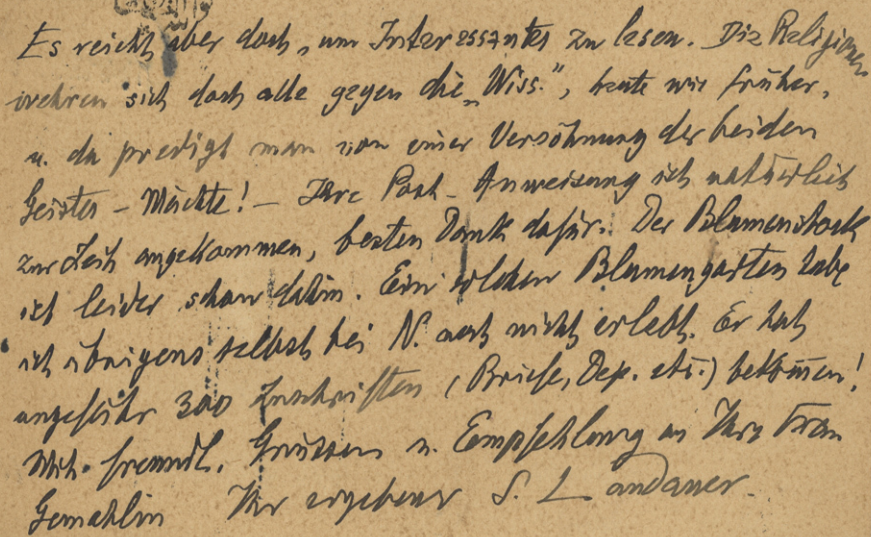 Es reicht aber doch, um Interessantes zu lesen. Die Religionen
wehren sich doch alle gegen die „Wiss.", heute wie früher,
u. da predigt man von einer Versöhnung der beiden
Geistes-Mächte! – Ihre Post-Anweisung ist natürlich
zur Zeit angekommen, besten Dank dafür. Der Blumenstock
ist leider schon dahin. Ein solchen Blumengarten habe
ich übrigens selbst bei N. noch nicht erlebt. Er hat
ungefähr 300 Zuschriften (Briefe, Dep. etc.) bekommen!
Mit freundl. Grüssen u. Empfehlung an Ihre Frau
Gemahlin Ihr ergebener S. Landauer.